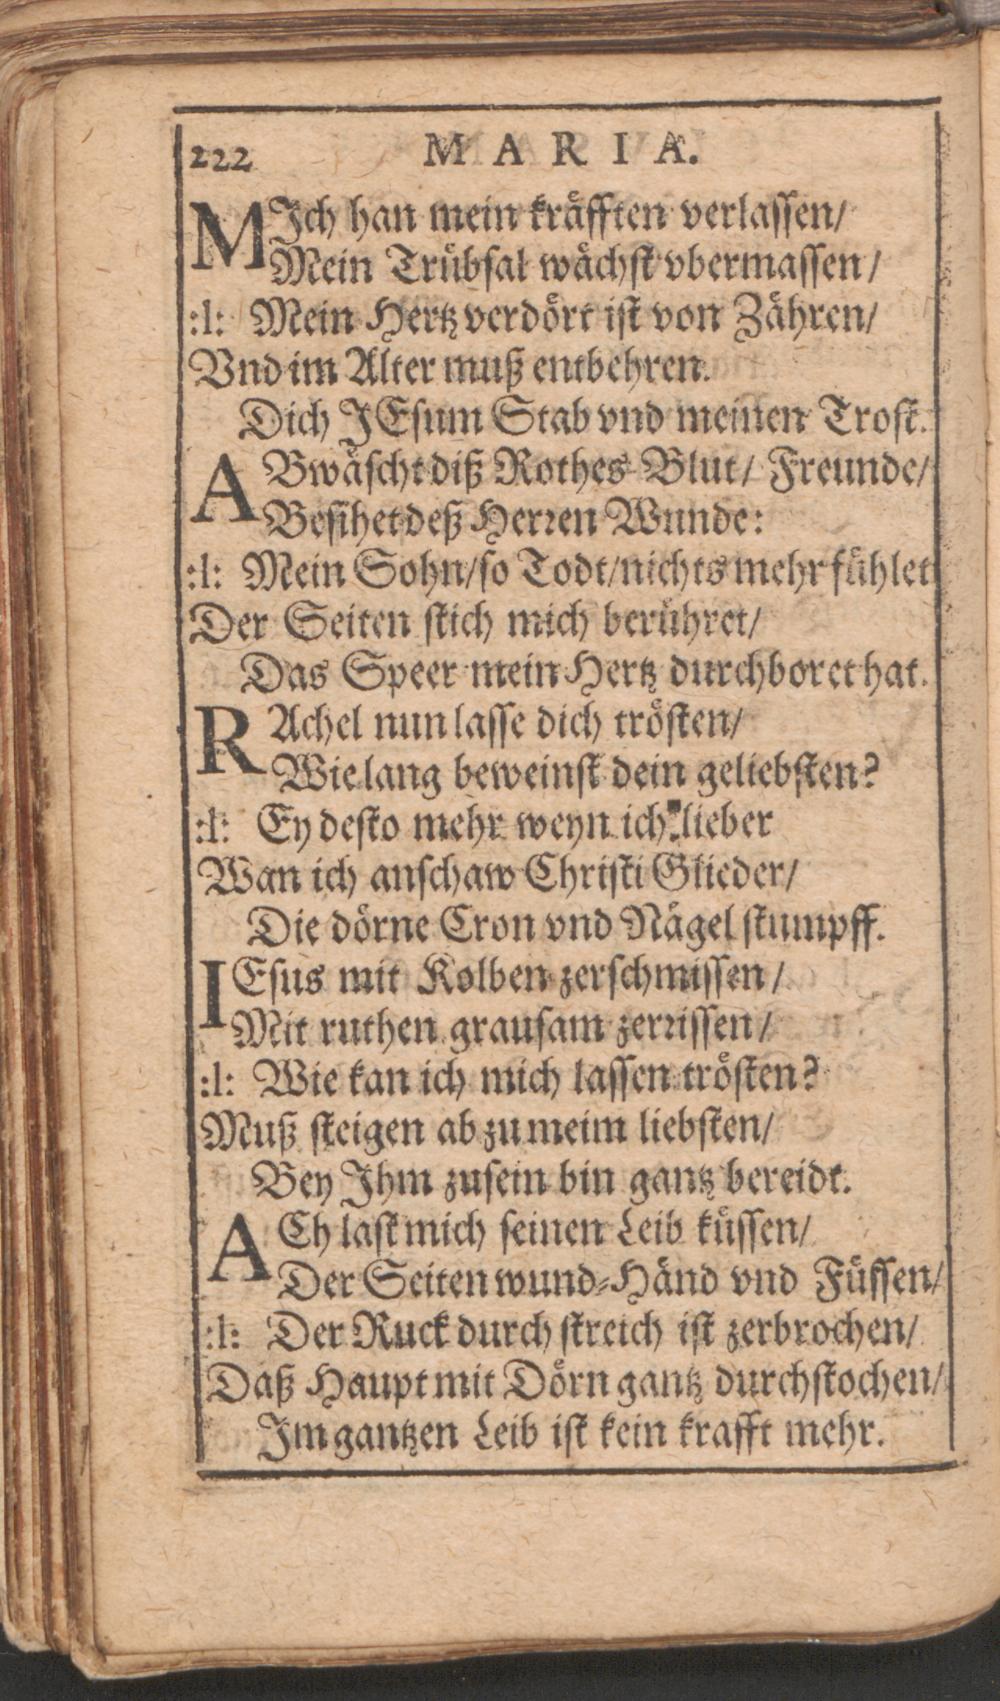 222 MARIA.
MJch han mein kräfften verlassen/
Mein Trübsal wächst vbermassen/
:l: Mein Hertz verdört ist von Zähren/
Vnd im Alter muß entbehren.
Dich JEsum Stab vnd meinen Trost.
ABwäscht diß Rothes Blut/ Freunde/
Besihet deß Herren Wunde:
:l: Mein Sohn/so Todt/nichts mehr fühlet
Der Seiten stich mich berühret/
Das Speer mein Hertz durchboret hat.
RAchel nun lasse dich trösten/
Wie lang beweinst dein geliebsten?
:l: Ey desto mehr weyn ich lieber
Wan ich anschaw Christi Glieder/
Die dörne Cron vnd Nägel stumpff.
IEsus mit Kolben zerschmissen/
Mit ruthen grausam zerrissen/
:l: Wie kan ich mich lassen trösten?
Muß steigen ab zu meim liebsten/
Bey Jhm zusein bin gantz bereidt.
ACh last mich seinen Leib küssen/
Der Seiten wund-Händ vnd Füssen/
:l: Der Ruck durch streich ist zerbrochen/
Daß Haupt mit Dörn gantz durchstochen/
Jm gantzen Leib ist kein krafft mehr.